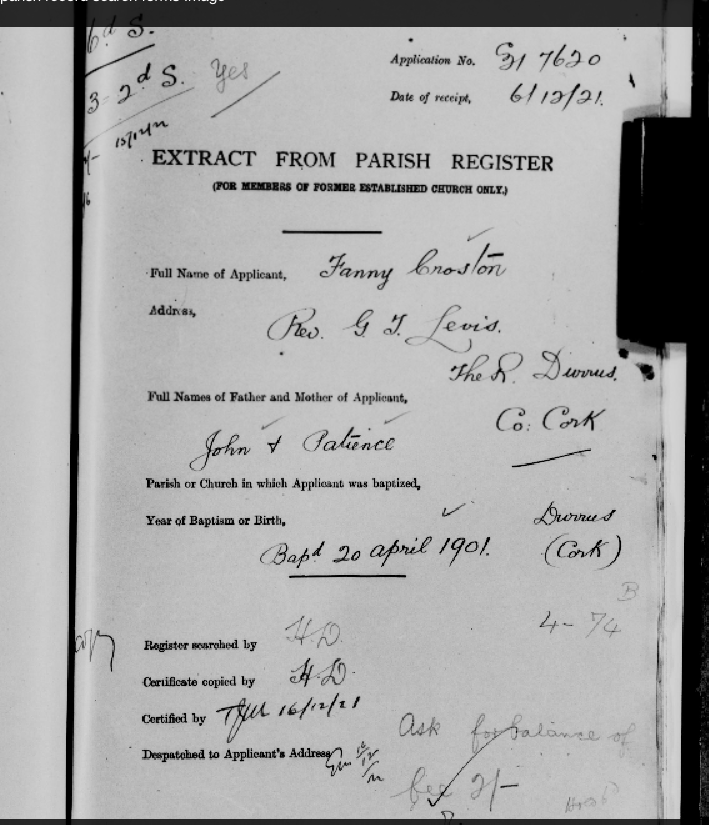 parish record search forms image
6d S.
3- 2d S. Yes
Application No. 7620
Date of receipt, 6/12/21.
EXTRACT FROM PARISH REGISTER
(FOR MEMBERS OF FORMER ESTABLISHED CHURCH ONLY.)
Full Name of Applicant, Fanny Croston
Address,
Rev. G T. Levis.
The R. Durrus.
Full Names of Father and Mother of Applicant,
Co: Cork
John & Patience
Parish or Church in which Applicant was baptized,
Year of Baptism or Birth, Durrus
Bapd 20 april 1901. (Cork)
B
4- 74
copy
Register searched by HD.
Certificate copied by HD.
Certified by 16/12/21
Ask for balance of
Despatched to Applicant's Address
fee 2/-